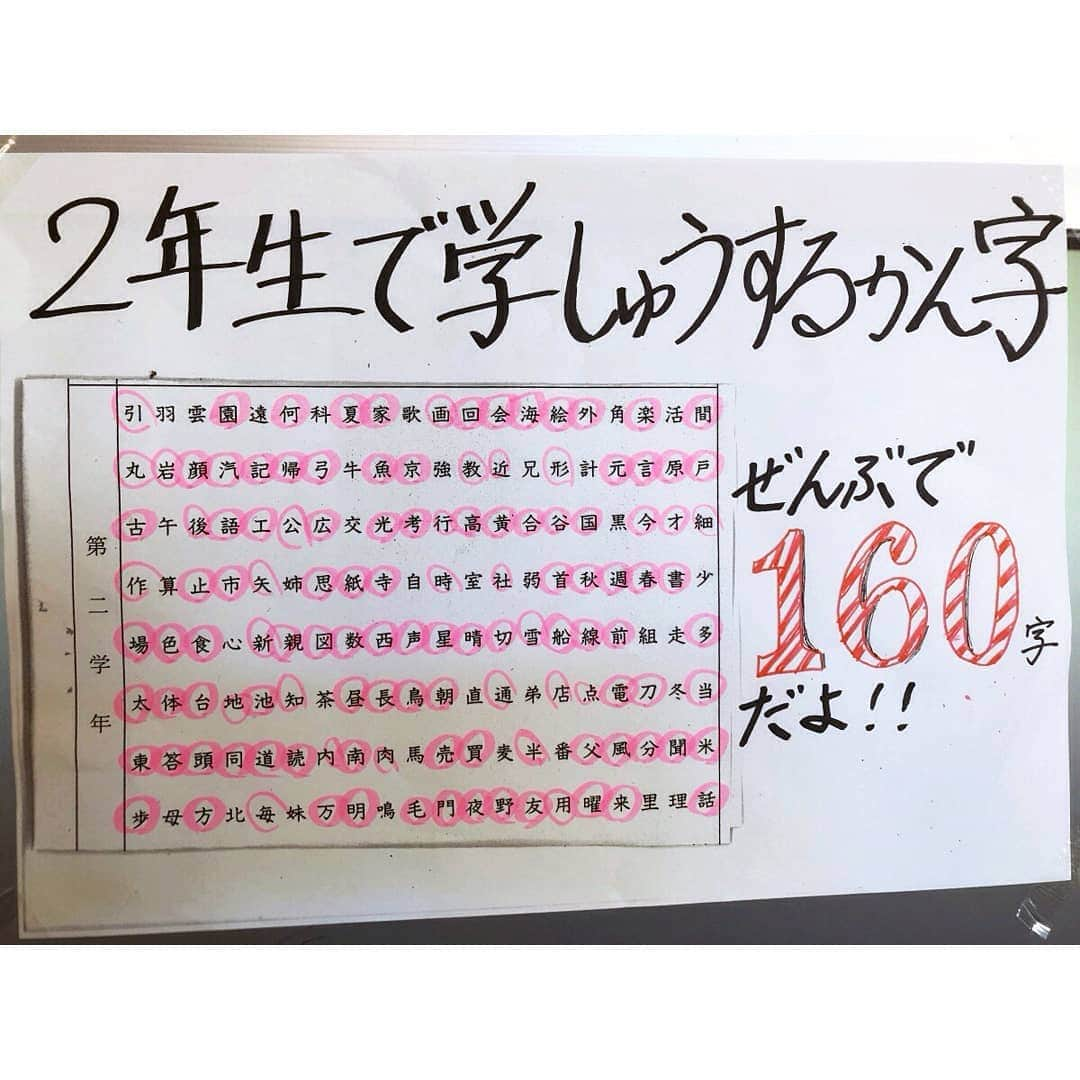 2年生で学しゅうするかん字
第二学年
引羽雲園遠何科夏家歌画回会海絵外角楽活間
丸岩顔汽記帰弓牛魚京強教近兄形計元言原戸
古午後語工公広交光考行高黄合谷国黒今才細
作算止市矢姉思紙寺自時室社弱首秋週春書少
場色食心新親図数西声星晴切雪船線前組走多
太体台地池知茶昼長鳥朝直通弟店点電刀冬当
東答頭同道読内南肉馬売買麦半番父風分聞米
歩母方北毎妹万明鳴毛門夜野友用曜来里理話
ぜんぶで
160字
だよ!!